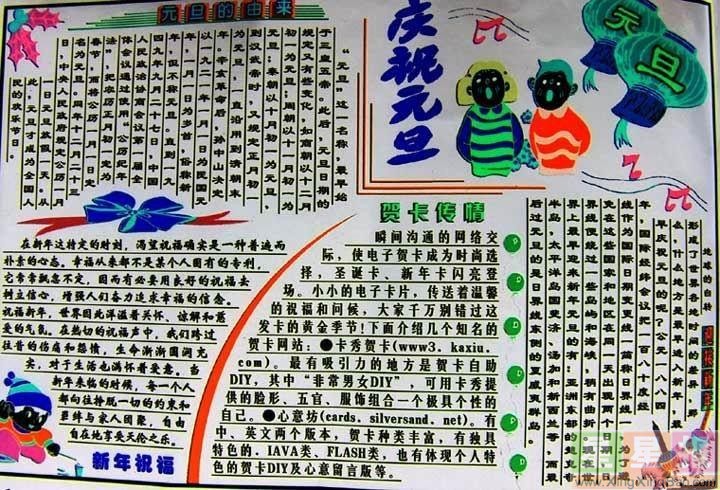 元旦的由来
“元旦”这一名称,最早始
于三皇五帝。此后,元旦日期的
规定又有些变化,如商朝以十
初一为元旦;周朝以十一月初一为
元旦;秦朝以十月初一为元旦,
到汉武帝时,又规定正月初一
为元旦,一直沿用到清朝末
年。辛亥革命后,孙中山决定
以一九一二年一月一日为民国元
年,一月一日为岁首,俗称新
年,但不称元旦。直到一九
四九年九月二十七日,中国
人民政治协商会议第一届全
体会议通过使用“公历纪年
法”,把农历正月初一定为
春节,而将公历一月一日定
名为元旦。同年十二月二十三
日,中央人民政府规定公历一月
一日元旦放假一天,从
此,元旦才成为全国人
民的欢乐节日。
庆祝元旦
元旦
在新年这特定的时刻,渴望祝福确实是一种普遍而
朴素的心态。幸福从来都不是某个人固有的专利,
它常常飘忽不定,因而有必要用良好的祝福去
树立信心,增强人们奋力追求幸福的信念。
祝福新年,世界因此洋溢着关怀、谅解和慈
爱的气氛。在热切的祝福声中,我们跨过
往昔的伤痛和怨愤,生命渐渐圆润充
实,对于生活也满怀着爱意。当
新年来临的时候,每一个人
都向往挣脱一切的约束和
羁绊与家人团聚,自由
自在地享受天伦之乐。
新年祝福
贺卡传情
瞬间沟通的网络交
际,使电子贺卡成为时尚选
择,圣诞卡、新年卡闪亮登
场。小小的电子卡片,传送着温馨
的祝福和问候,大家千万别错过这
发卡的黄金季节!下面介绍几个知名的
贺卡网站:●卡秀贺卡(www3.kaxiu.
com)。最有吸引力的地方是贺卡自助
DIY,其中“非常男女DIY”,可用卡秀提
供的脸形、五官、服饰组合一个极具个性的
自己。●心意坊(cards.silversand.net)。有
中、英文两个版本,贺卡种类丰富,有独具
特色的.JAVA类、FLASH类,也有体现个人特
色的贺卡DIY及心意留言版等。
地球的自
形成了世界各地时间的差异,那
么,什么地方是最早进入新年、最
早庆祝元旦的呢?公元一八八四
年,国际经线会议把一百八十度经
线作为国际日期变更线一简称日界线。为了避
免在这些国家和地区在同一天出现两个日期,日
界线便绕过一些岛屿和海峡,稍有曲折。现在世
界上最早迎来新年元旦的有:亚洲东部的楚克奇
半岛,太平洋岛国斐济、汤加和新西兰等,而最
后过元旦的是日界线东侧的夏威夷群岛。